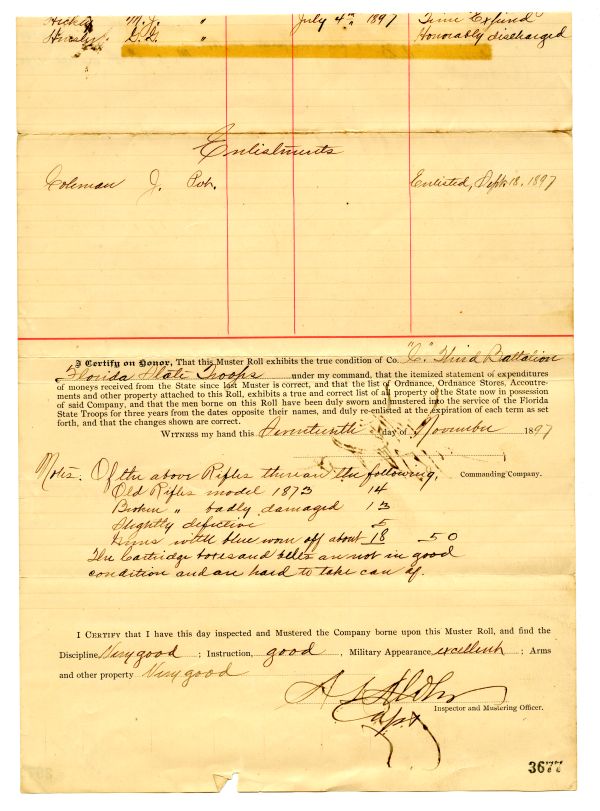 Hicks M. J. " July 4th 1897 Time Expired
" Honorably discharged
Enlistments
Coleman J. Pvt. Enlisted, Sept. 18, 1897
I Certify on Honor, That this Muster Roll exhibits the true condition of Co. "C." Third Battalion
Florida State Troops under my command, that the itemized statement of expenditures
of moneys received from the State since last Muster is correct, and that the list of Ordnance, Ordnance Stores, Accoutre-
ments and other property attached to this Roll, exhibits a true and correct list of all property of the State now in possession
of said Company, and that the men borne on this Roll have been duly sworn and mustered into the service of the Florida
State Troops for three years from the dates opposite their names, and duly re-enlisted at the expiration of each term as set
forth, and that the changes shown are correct.
Witness my hand this Seventeenth day of November 1897
Commanding Company.
Notes: Of the above Rifles there are the following.
Old Rifles model 1873 14
Broken " badly damaged 13
Slightly defective 5
Arms with blue worn off about 18 50
The Cartridge boxes and belts are not in good
condition and are hard to take care of.
I Certify that I have this day inspected and Mustered the Company borne upon this Muster Roll, and find the
Discipline Very good ; Instruction, good , Military Appearance, excellent ; Arms
and other property Very good
Capt.
Inspector and Mustering Officer.
3677